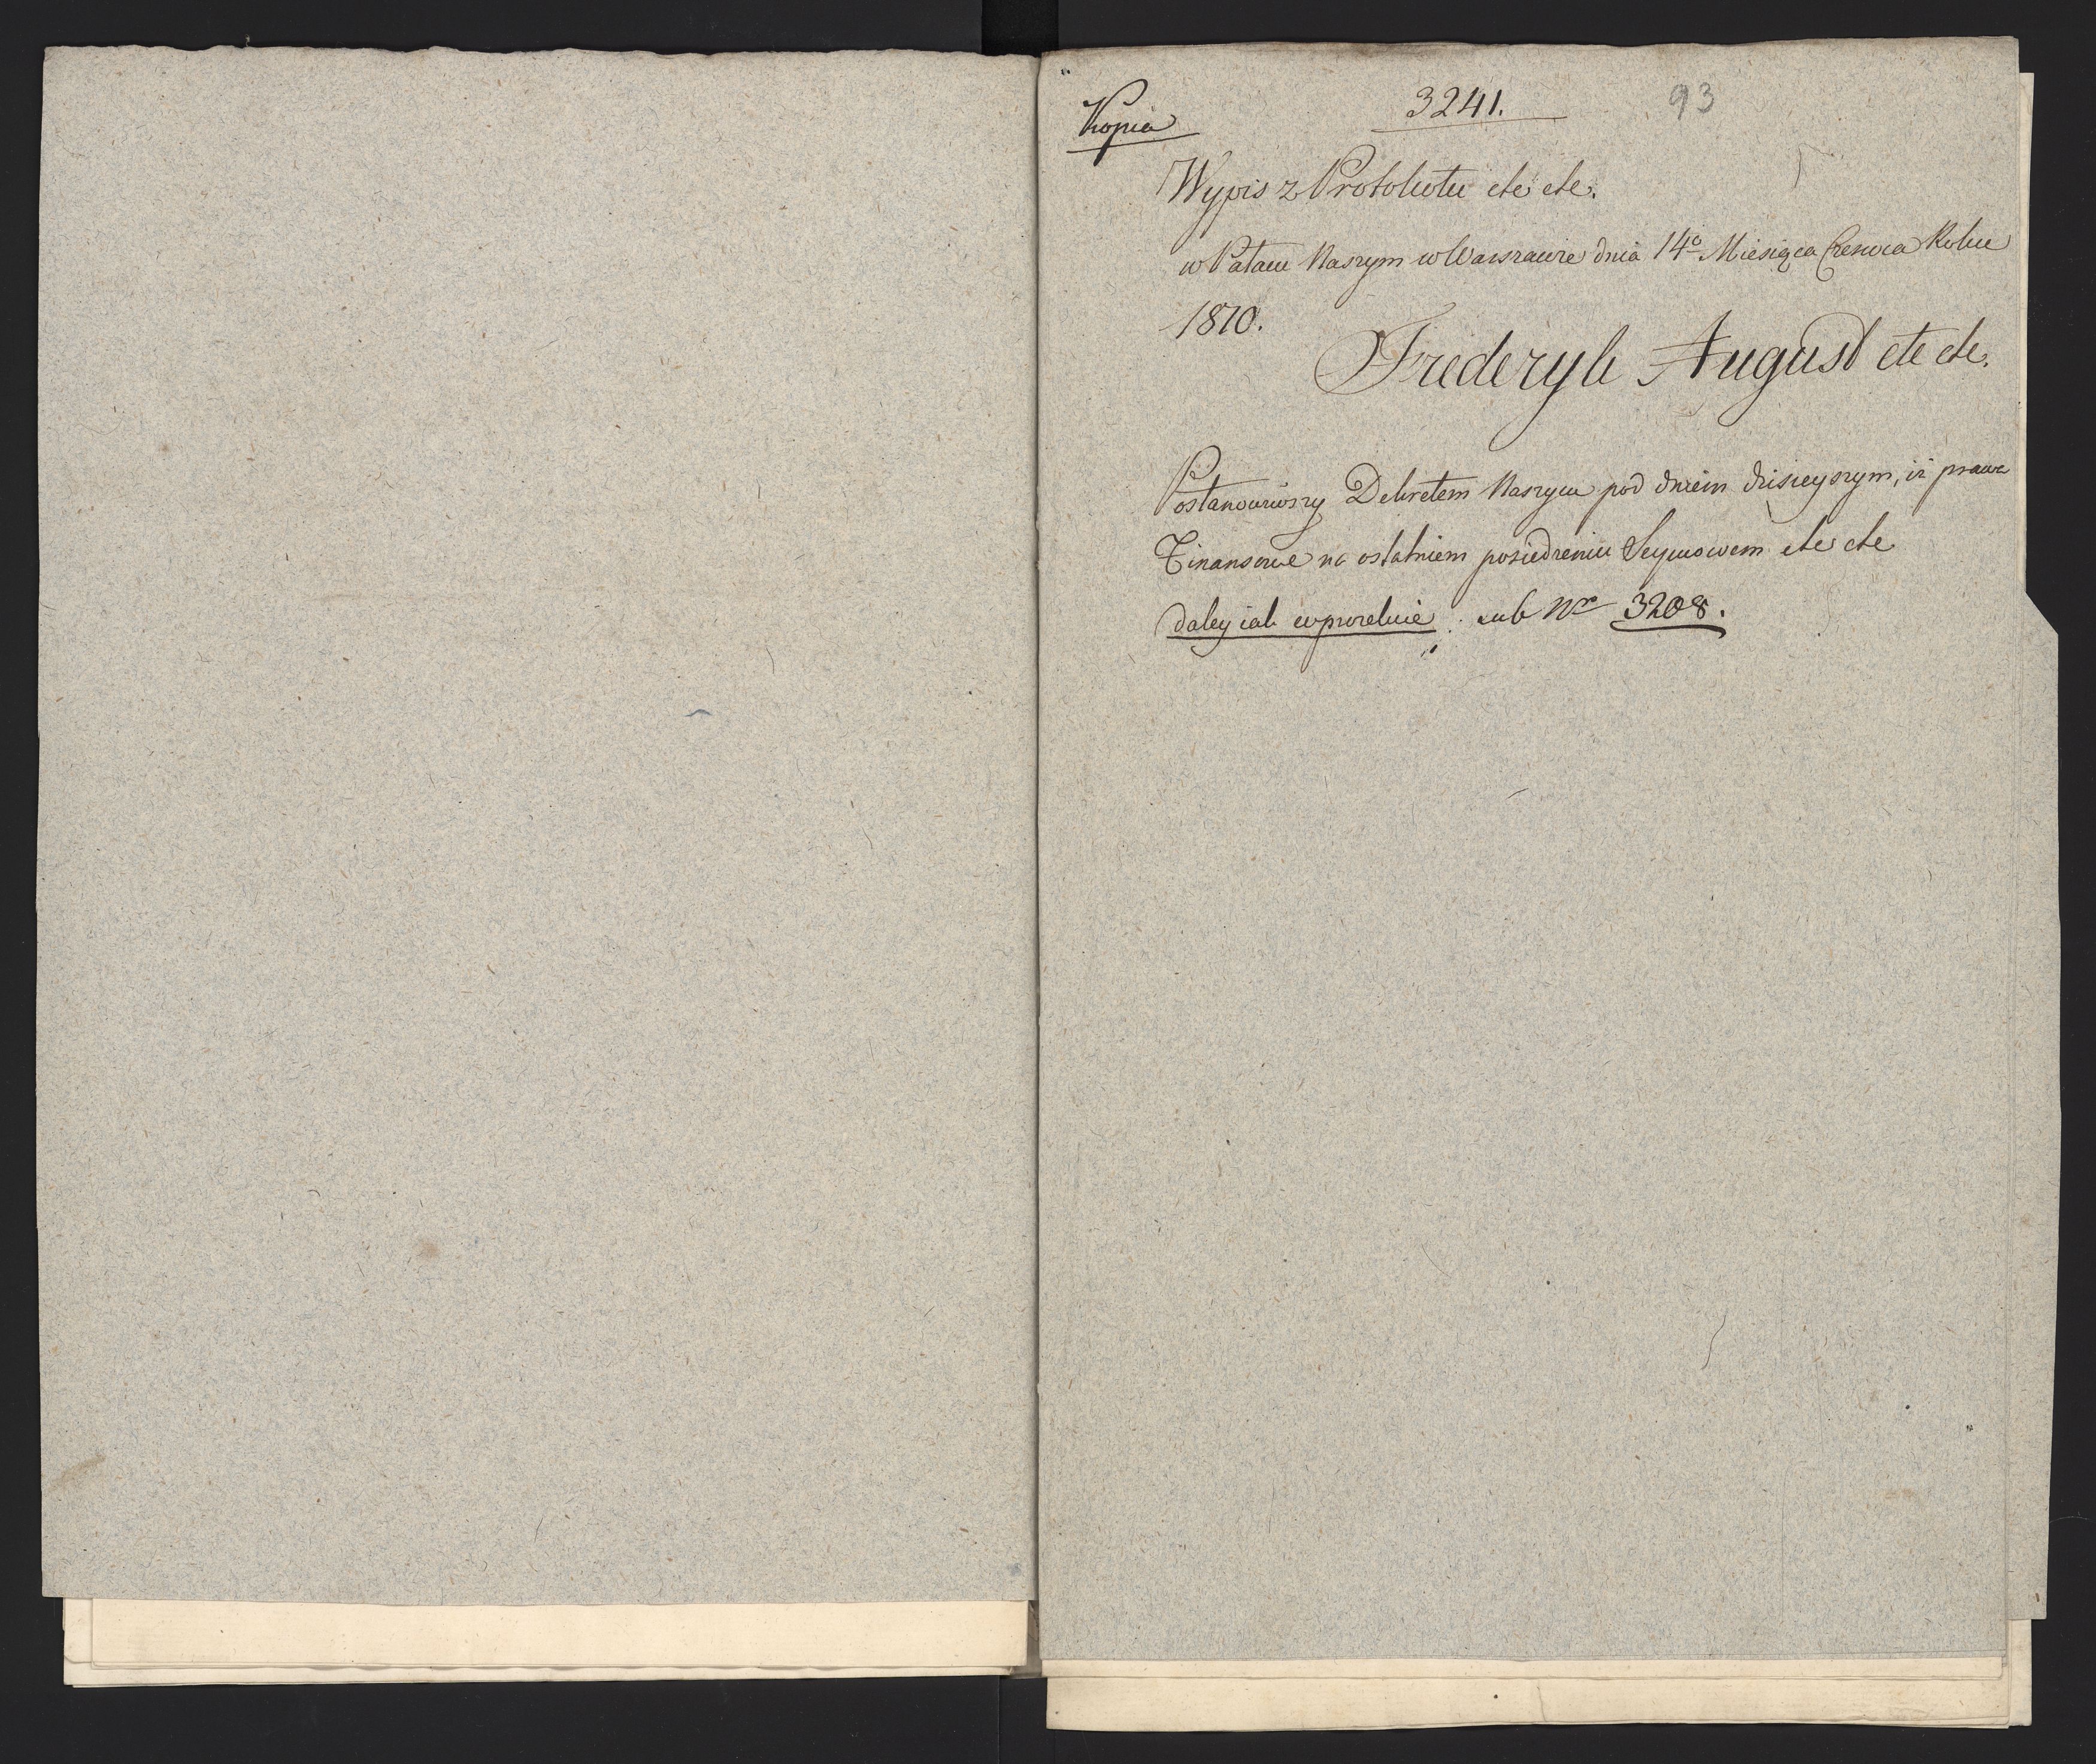 Kopia
3241.
93
Wypis z Protokułu etc etc.
w Pałacu Naszym w Warszawie dnia 14º Miesiąca Czerwca Roku
1810.
Frederyk August etc etc.
Postanowiwszy Dekretem Naszym pod dniem dzisieyszym, iż prawa
Finansowe na ostatniem posiedzeniu Seymowem etc etc
daley iak w przedmie sub Nro 3208.